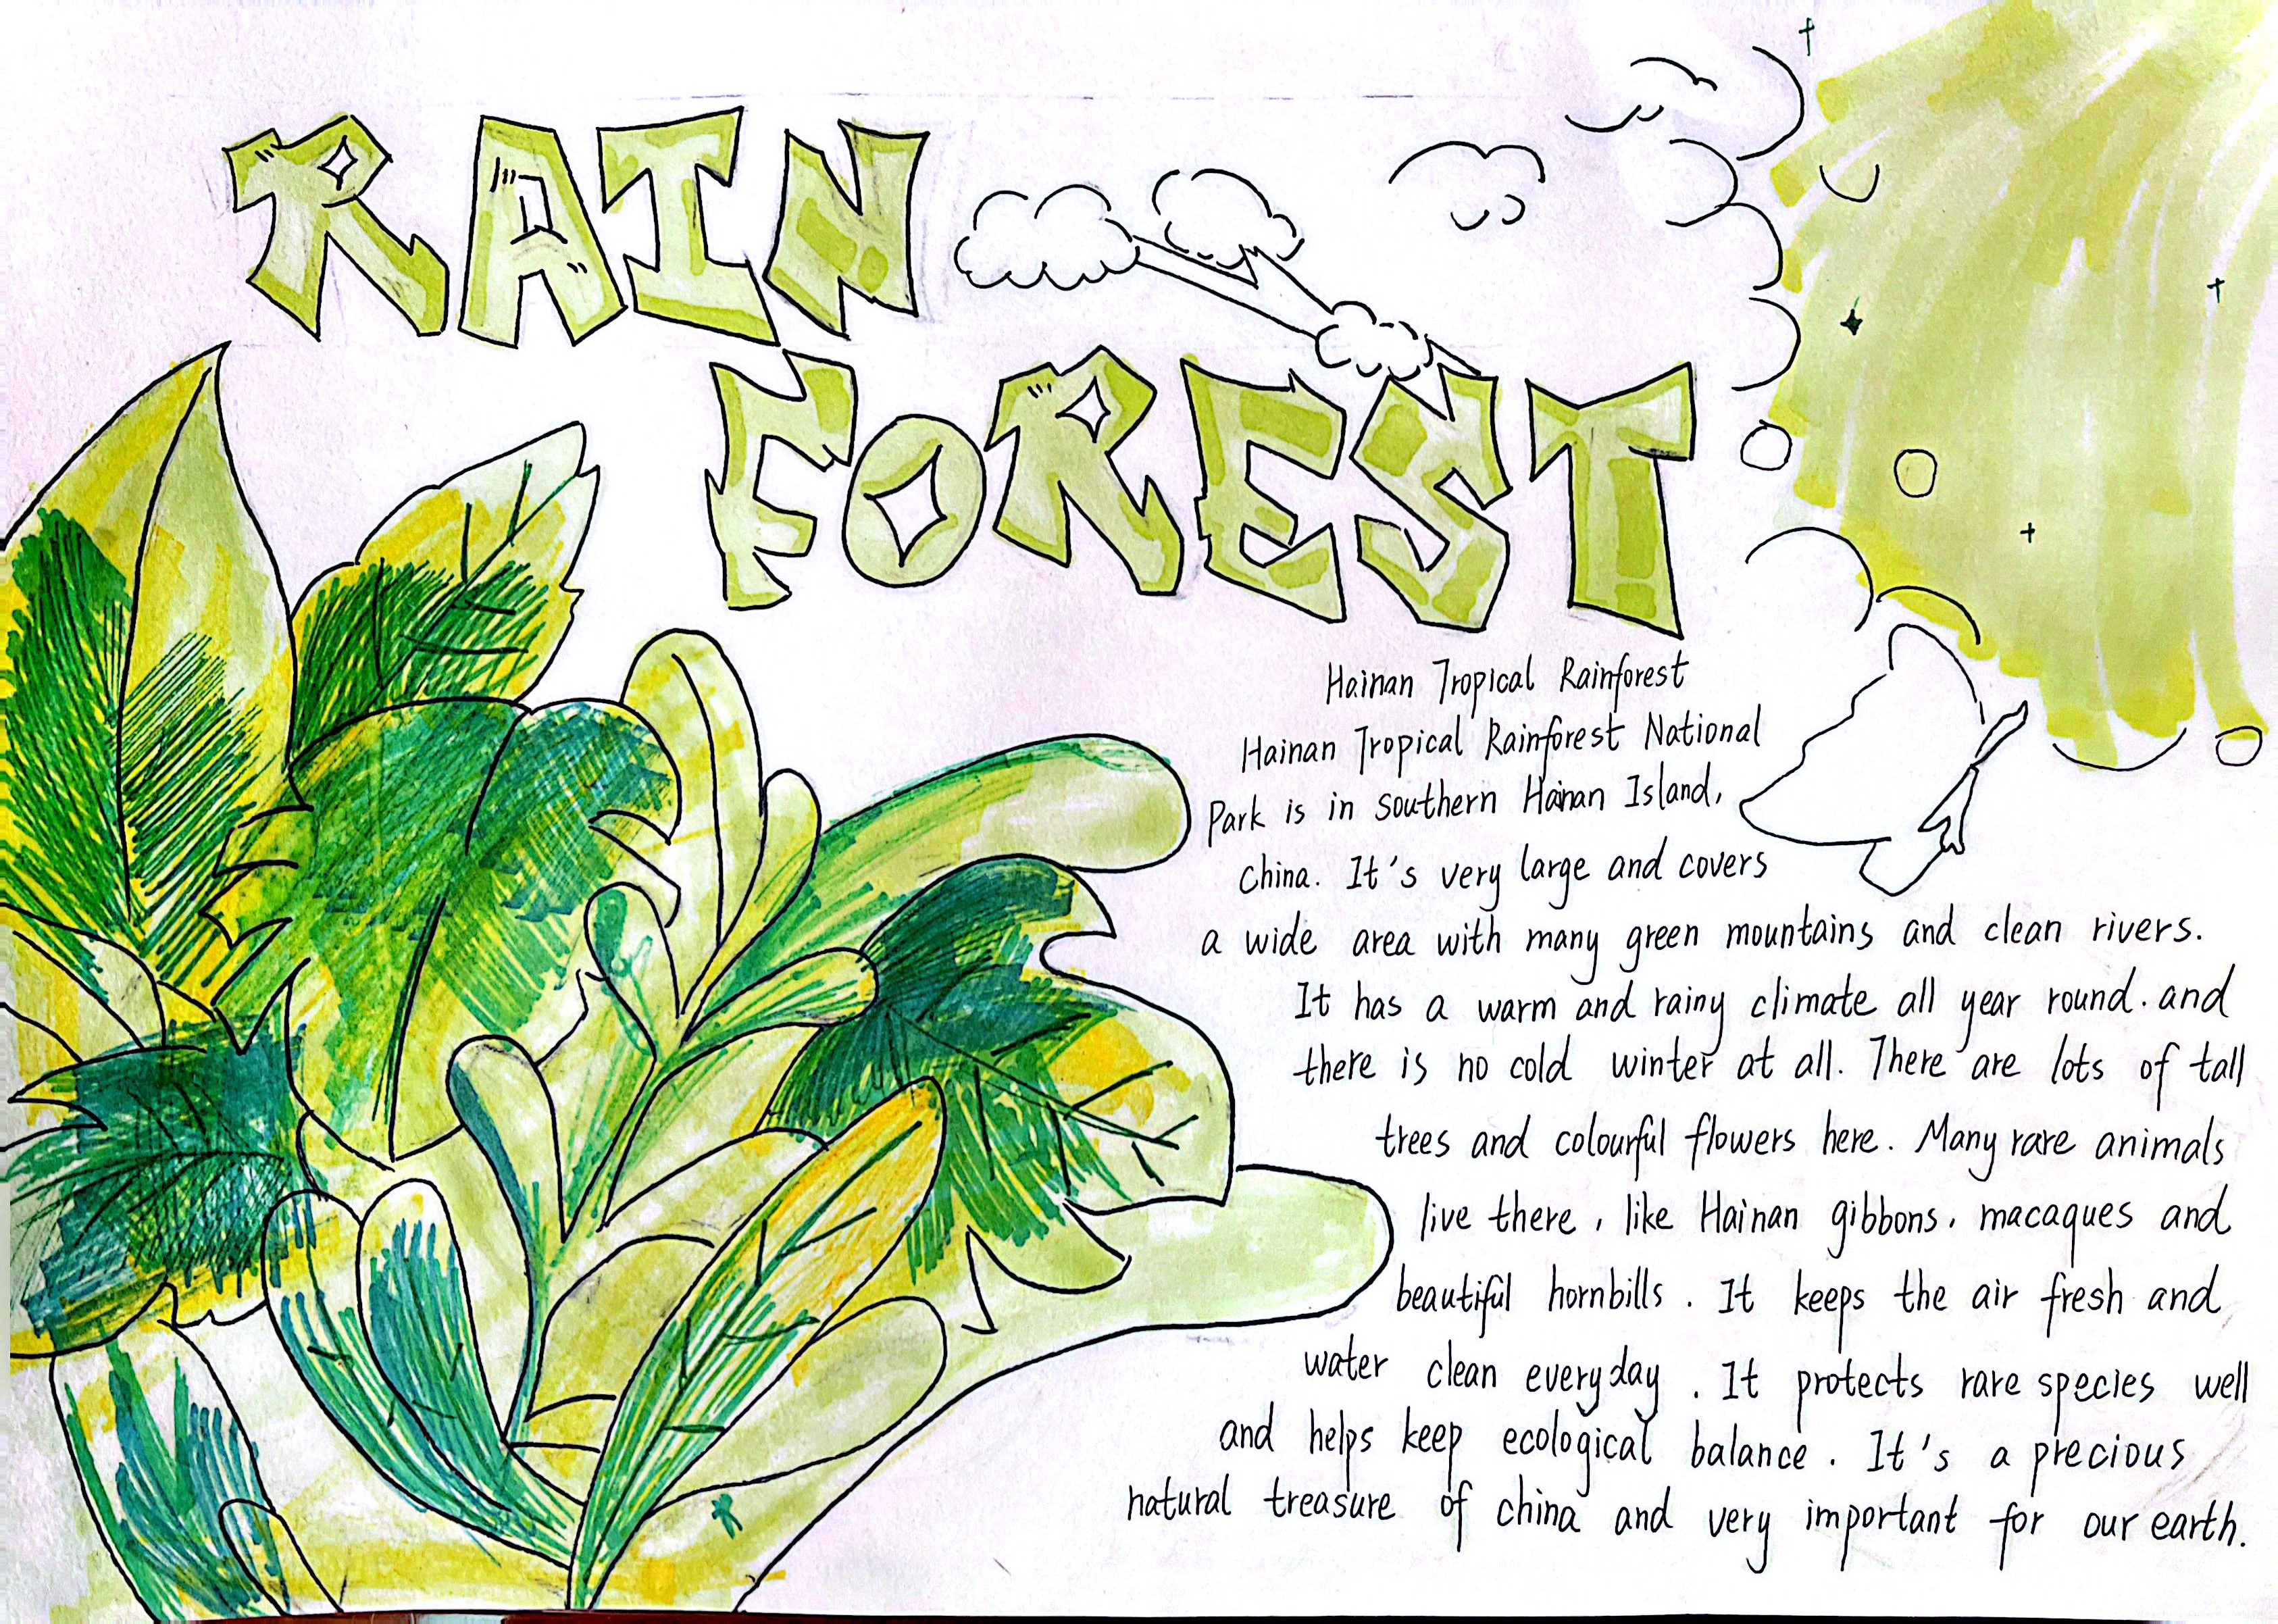 RAIN
FOREST
Hainan Tropical Rainforest
Hainan Tropical Rainforest National
Park is in southern Hainan Island,
China. It's very large and covers
a wide area with many green mountains and clean rivers.
It has a warm and rainy climate all year round. and
there is no cold winter at all. There are lots of tall
trees and colourful flowers here. Many rare animals
live there, like Hainan gibbons, macaques and
beautiful hornbills. It keeps the air fresh and
water clean everyday. It protects rare species well
and helps keep ecological balance. It's a precious
natural treasure of china and very important for our earth.